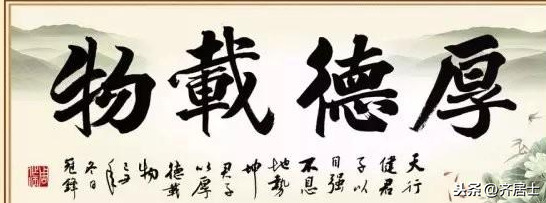 厚德載物
天行
健君
子以
自强
不息
地勢
坤
君子
以厚
德載
物
冬日
头条 @齐居士